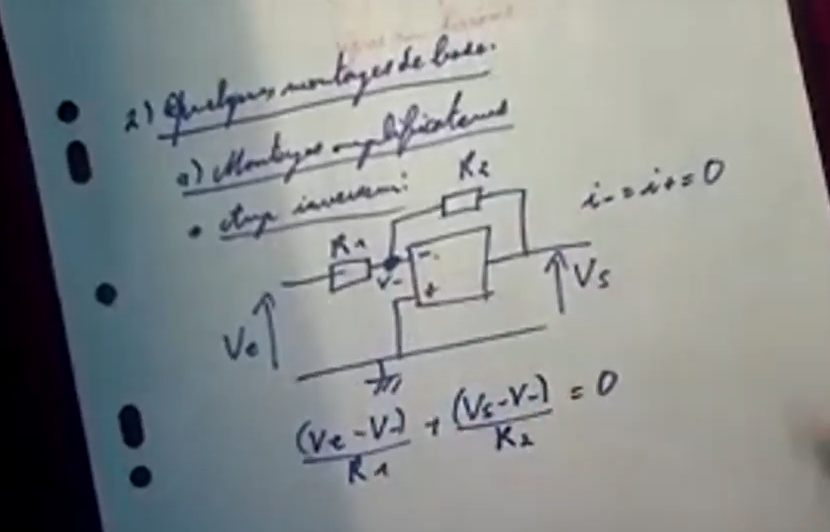 2) Quelques montages de base.
a) Montages amplificateurs
• Amp inverseur:
R2
i- = i+ = 0
R1
-
V-
+
Vs
Ve
(Ve - V-)/R1 + (Vs - V-)/R2 = 0